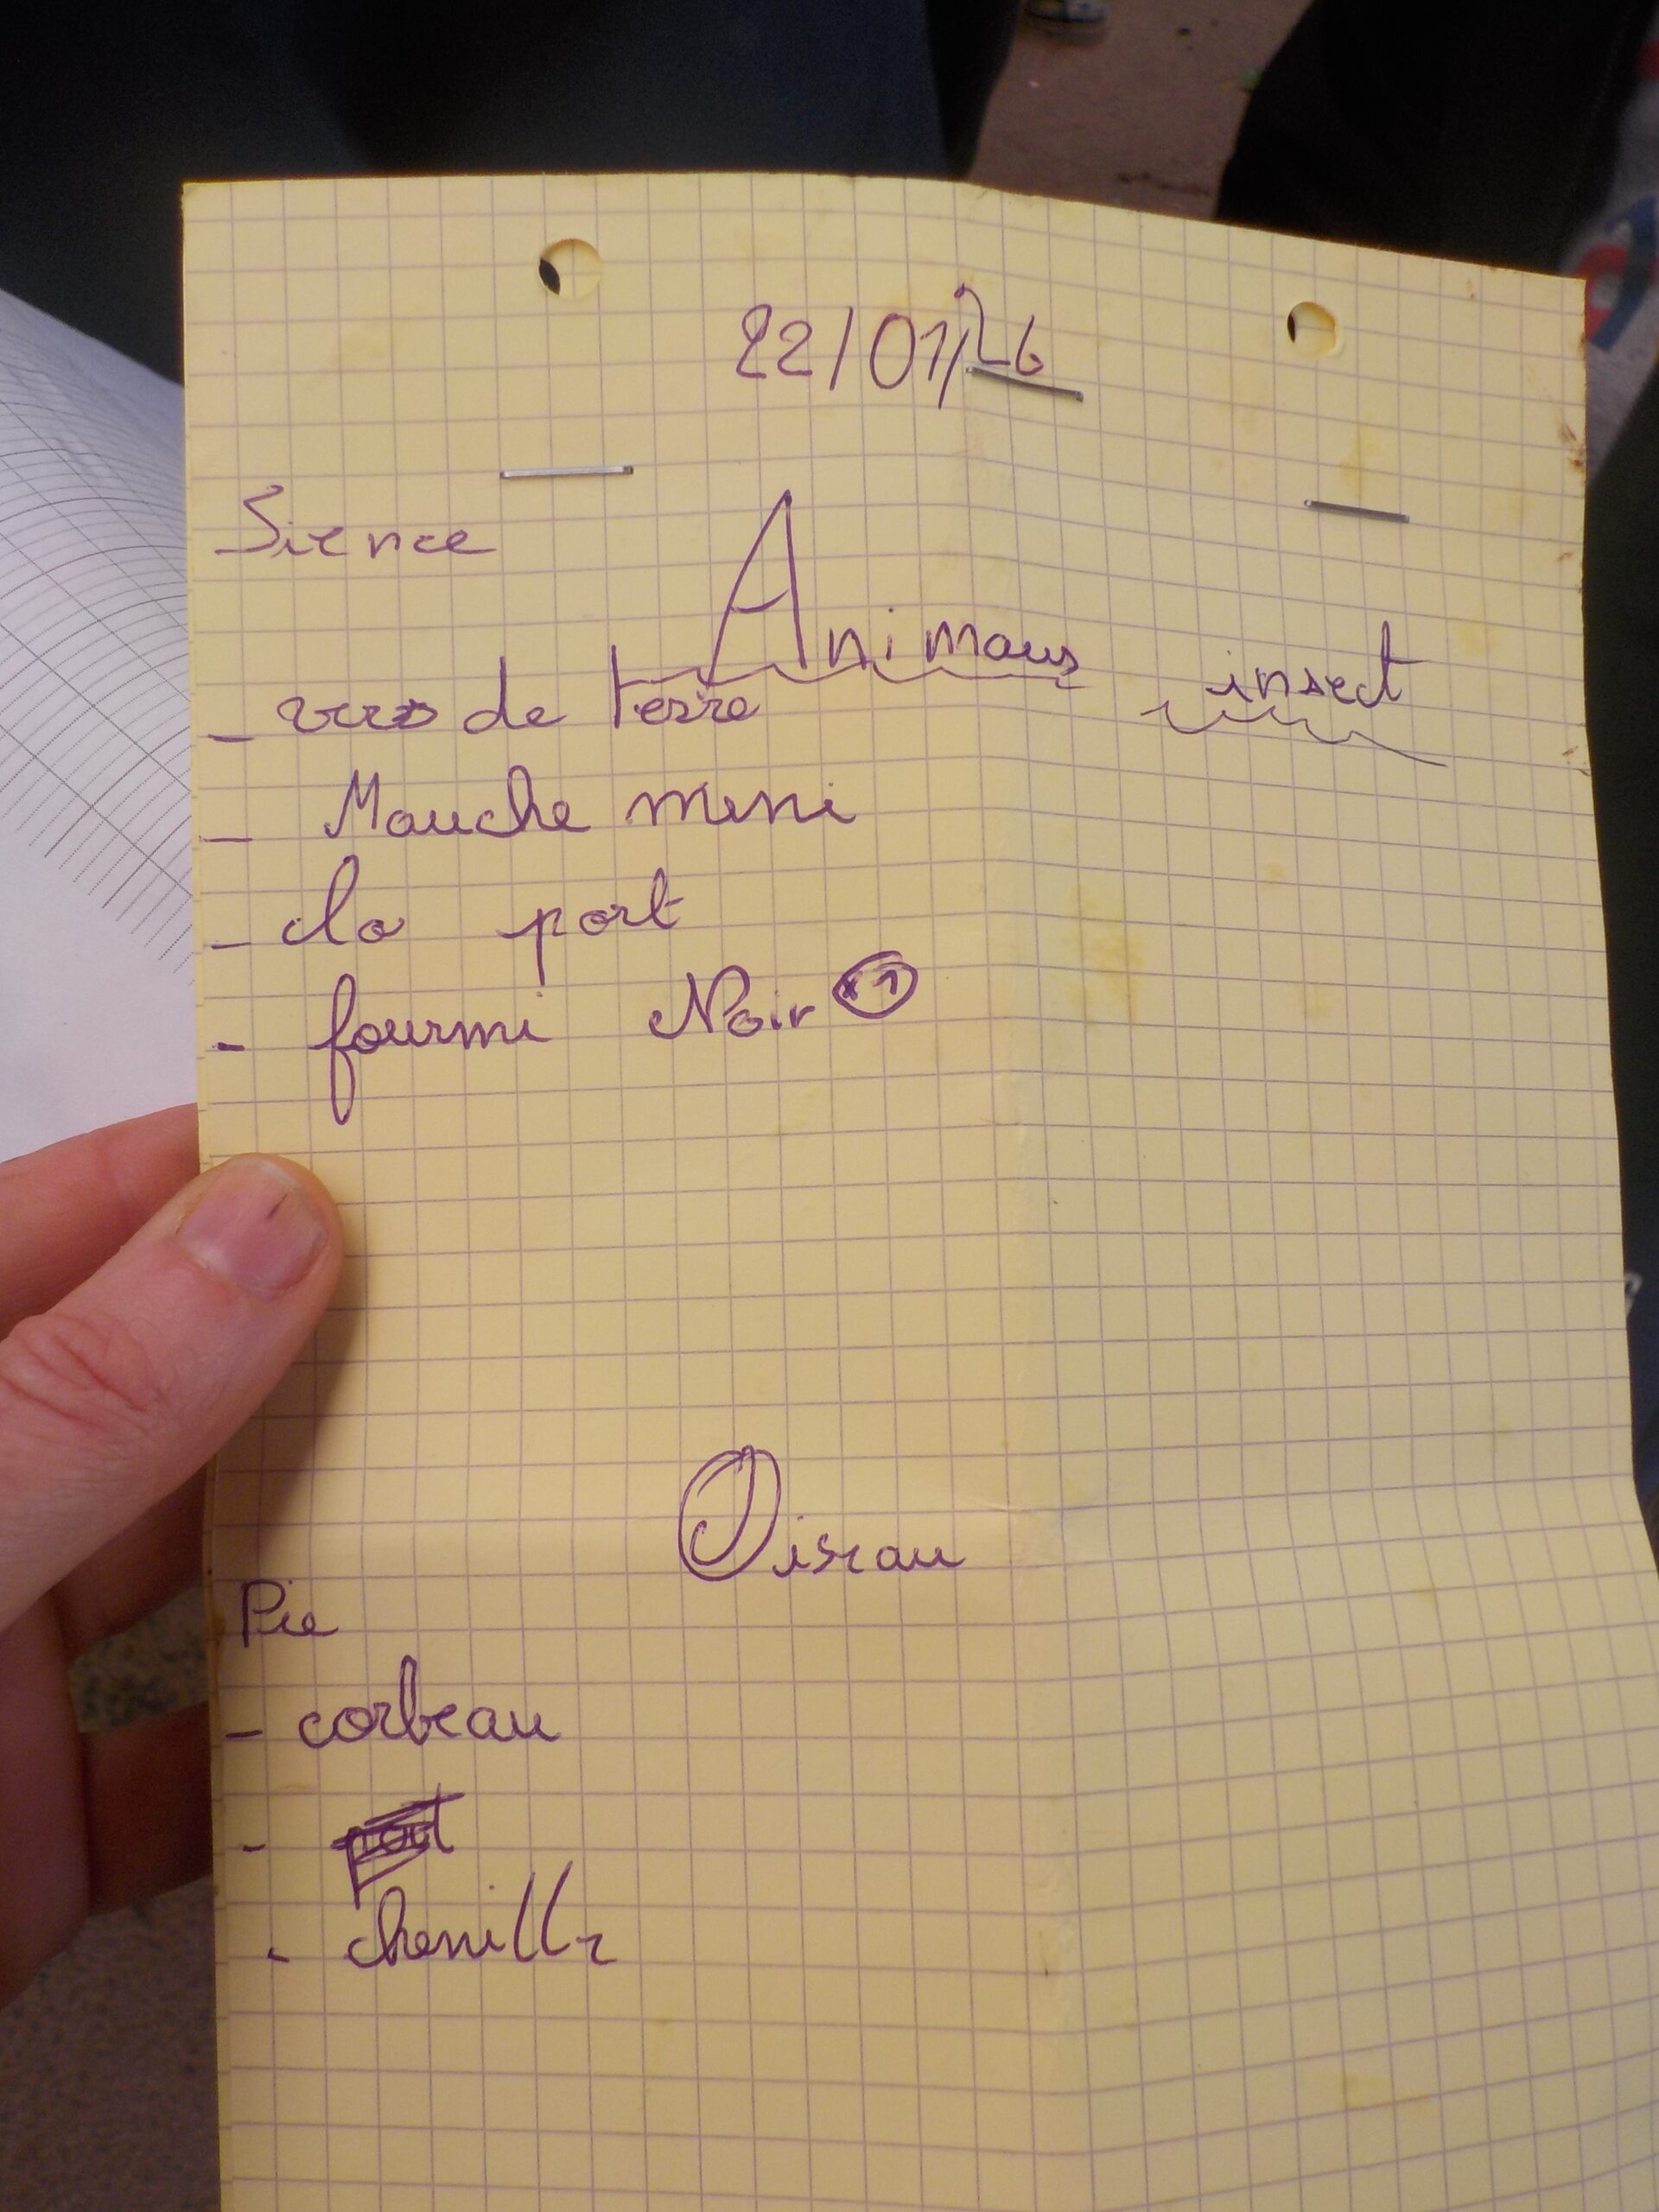 22/01/26
Sience
Animaus insect
- vers de terre
- Mouche mini
- clo port
- fourmi Noir x1
Oiseau
Pie
- corbeau
-
- chenille